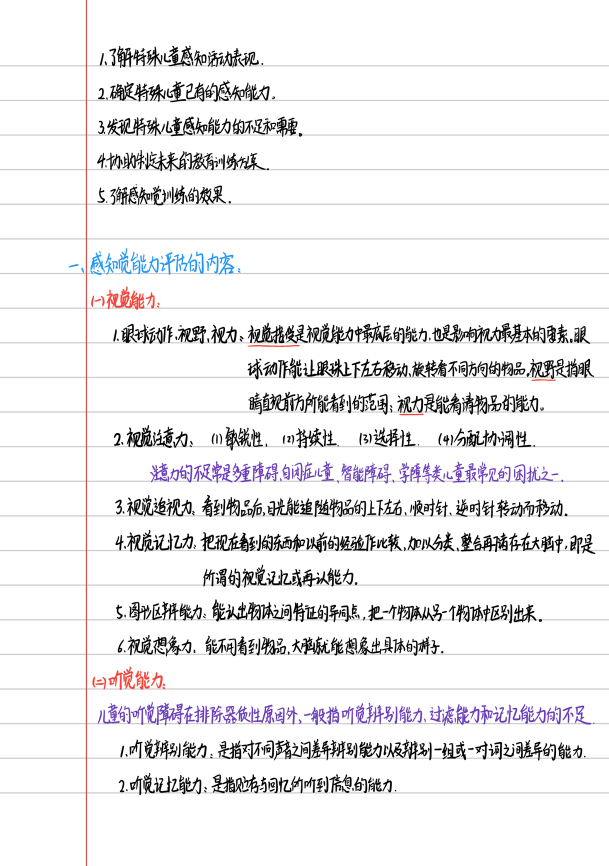 1.了解特殊儿童感知活动表现.
2.确定特殊儿童已有的感知能力.
3.发现特殊儿童感知能力的不足和需要。
4.协助制定未来的教育训练方案.
5.了解感知觉训练的效果.
一、感知觉能力评估的内容:
(一)视觉能力:
1.眼球动作、视野、视力: 视觉指促是视觉能力中最底层的能力,也是影响视力最基本的要素。眼
球动作能让眼珠上下左右移动、旋转看不同方向的物品。视野是指眼
睛直视前方所能看到的范围; 视力是能看清物品的能力。
2.视觉注意力: (1)敏锐性. (2)持续性. (3)选择性. (4)分配协调性.
注意力的不足常是多重障碍、自闭症儿童、智能障碍、学障等类儿童最常见的困扰之一.
3.视觉追视力: 看到物品后,目光能追随物品的上下左右、顺时针、逆时针转动而移动.
4.视觉记忆力: 把现在看到的东西和以前的经验作比较,加以分类、整合再储存在大脑中,即是
所谓的视觉记忆或再认能力.
5.图形区辨能力: 能认出物体之间特征的异同点,把一个物体从另一个物体中区别出来.
6.视觉想象力: 能不用看到物品,大脑就能想象出具体的样子.
(二)听觉能力:
儿童的听觉障碍在排除器质性原因外,一般指听觉辨别能力、过滤能力和记忆能力的不足.
1.听觉辨别能力: 是指对不同声音之间差异辨别能力以及辨别一组或一对词之间差异的能力.
2.听觉记忆能力: 是指贮存与回忆所听到信息的能力.